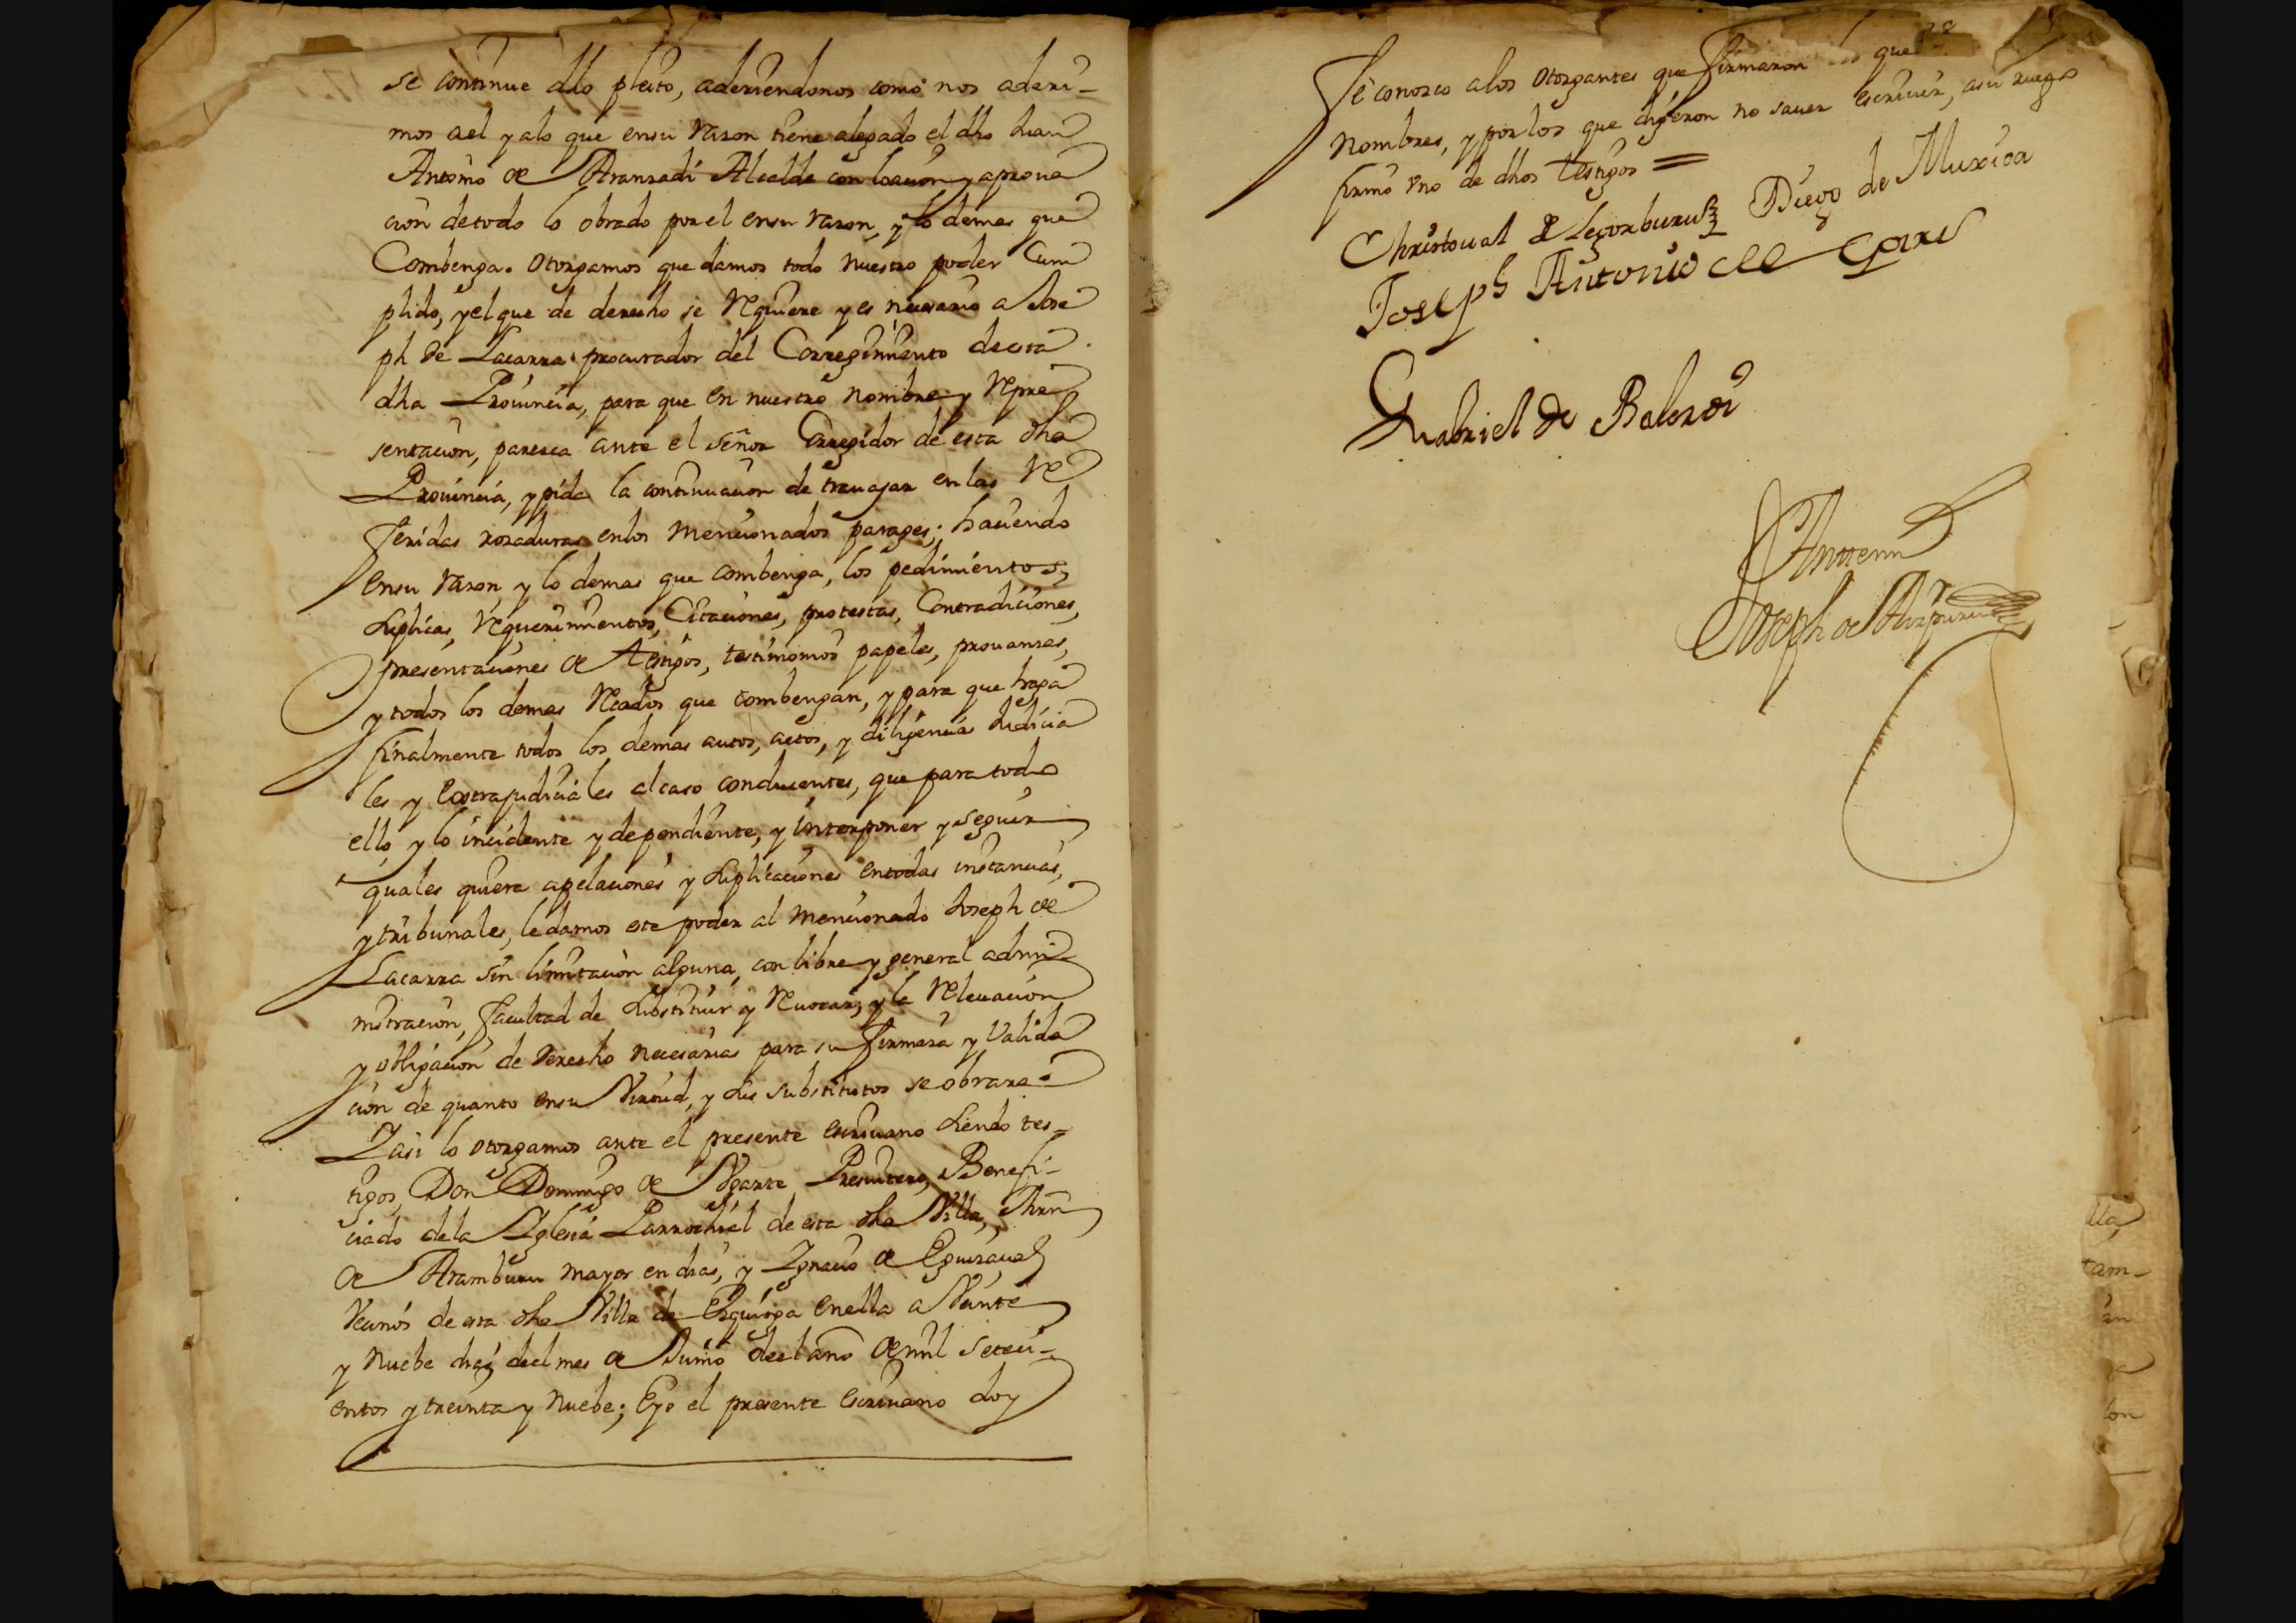 se continue dho pleito, aderiendonos como nos aderi-
mos ael y alo que ensu razon tiene alegado el dho Juan
Antonio de Aranzadi Alcalde con loacion y aproua
cion detodo lo obrado por el ensu razon, y lo demas que
Combenga. Otorgamos que damos todo nuestro poder Cum
plido, y el que de derecho se requiere y es necesario a Jose
ph de Lacarra procurador del Corregimiento de esta
dha Prouincia, para que en nuestro nombre y repre
sentacion, paresca ante el señor Corregidor de esta dha
Prouincia, y pida la continuacion de trauajar en las re
feridas rozaduras enlos mencionados parages; hauiendo
ensu razon y lo demas que combenga, los pedimientos,
suplicas, requerimientos, Citaciones, protestas, Contradiciones,
presentaciones de testigos, testimonios papeles, prouanzas,
y todos los demas recados que combengan, y para que haga
finalmente todos los demas autos, actos, y diligencias Judicia
les y Extrajudiciales al caso conducentes, que para todo
ello y lo incidente y dependiente, y interponer y seguir
quales quiera apelaciones y suplicaciones entodas instancias,
y tribunales, le damos este poder al mencionado Joseph de
Lacarra sin limitacion alguna, con libre y general admi
nistracion, facultad de substituir y reuocar, y la releuacion
y obligacion de derecho necesarias para su firmeza y valida
cion de quanto ensu virtud, y sus substitutos se obrare.
Y asi lo otorgamos ante el presente escriuano siendo tes-
tigos, Don Domingo de Ugarte Presuitero, Benefi-
ciado dela Yglesia Parrochial de esta dha Villa,
de Aramburu mayor en dias, y Ygnacio de Eguizaual
vecinos de esta dha Villa de Ezquioga enella a Veinte
y nuebe dias del mes de Junio deel año de mil seteci-
entos y treinta y nuebe; E yo el presente escriuano doy
fe conozco alos otorgantes que firmaron que
nombres, y por los que dijeron no sauer escriuir, asu ruego
firmo vno de dhos testigos =
Christoual de Legorburu Diego de Muxica
Joseph Antonio de
Gabriel de
Antemi
Joseph de Aizpuru